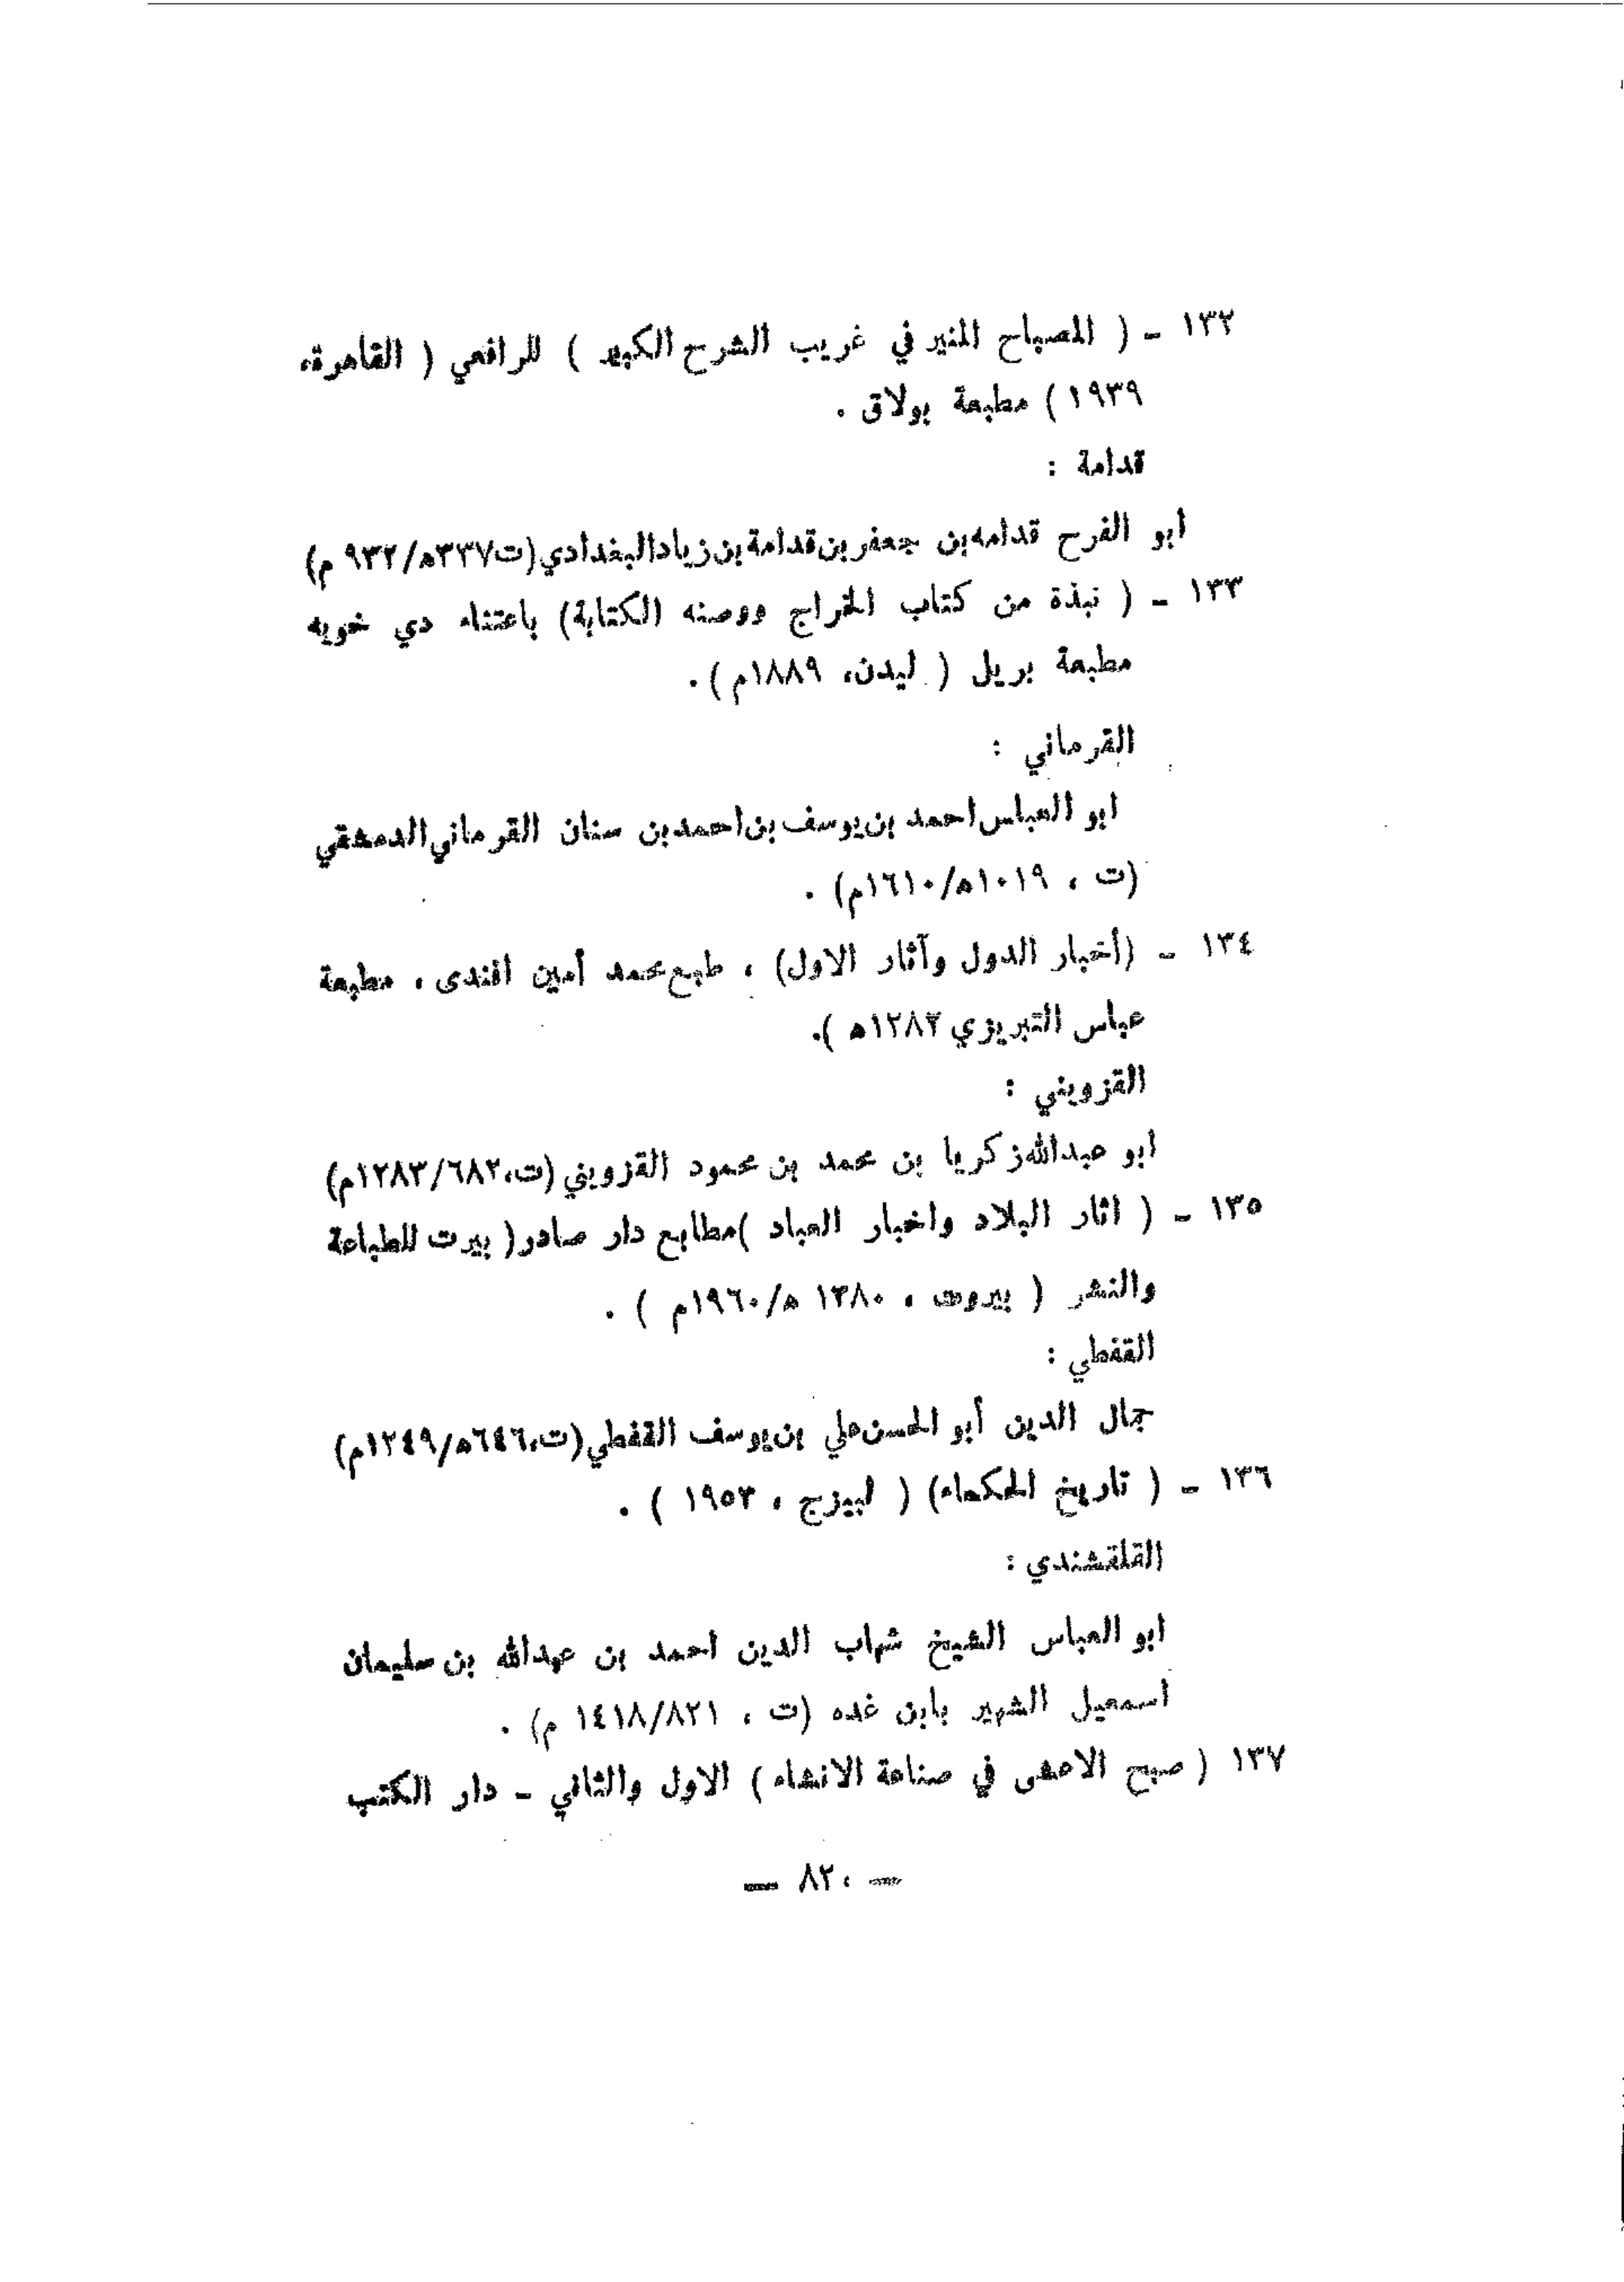 ١٣٢ ـ ( المصباح المنير في غريب الشرح الكبير ) للرافعي ( القاهرة،
١٩٣٩ ) مطبعة بولاق .
قدامة :
أبو الفرح قدامه بن جعفر بن قدامة بن زياد البغدادي (ت٣٣٧ه/٩٣٢ م)
١٣٣ ـ ( نبذة من كتاب الخراج ووصنه الكتابة) باعتناء دي خويه
مطبعة بريل ( ليدن، ١٨٨٩م ) .
القرماني :
ابو العباس احمد بن يوسف بن احمد بن سنان القرماني الدمشقي
(ت ، ١٠١٩ه/١٦١٠م) .
١٣٤ ـ (أخبار الدول وآثار الاول) ، طبع محمد أمين افندى ، مطبعة
عباس التبريزي ١٢٨٢ه ).
القزويني :
ابو عبدالله زكريا بن محمد بن محمود القزويني (ت،٦٨٢/١٢٨٣م)
١٣٥ ـ ( اثار البلاد واخبار العباد )مطابع دار صادر( بيرت للطباعة
والنشر ( بيروت ، ١٣٨٠ ه/١٩٦٠م ) .
القفطي :
جمال الدين أبو الحسن علي بن يوسف القفطي (ت،٦٤٦ه/١٢٤٩م)
١٣٦ ـ ( تاريخ الحكماء) ( لبيزج ، ١٩٥٣ ) .
القلقشندي :
ابو العباس الشيخ شهاب الدين احمد بن عبدالله بن سليمان
اسمعيل الشهير بابن غده (ت ، ٨٢١/١٤١٨ م) .
١٣٧ ( صبح الاعشى في صناعة الانشاء ) الاول والثاني ـ دار الكتب
— ٨٢٠ —